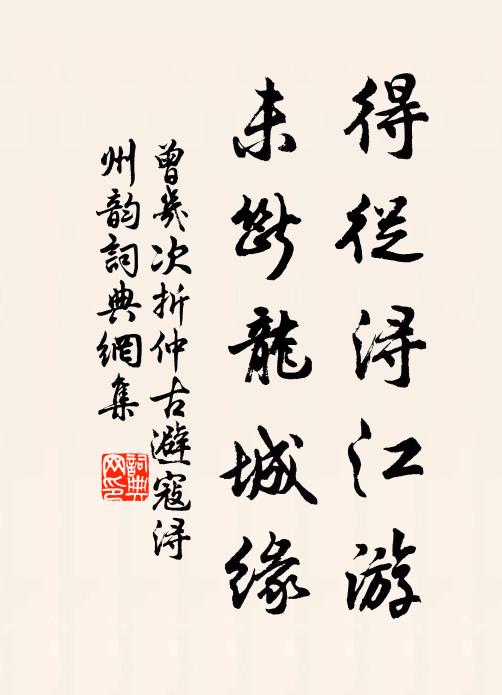 得從浔江游
未斷龍城緣
曾幾次折仲古避寇浔
州韵詞典網集
詞典网印